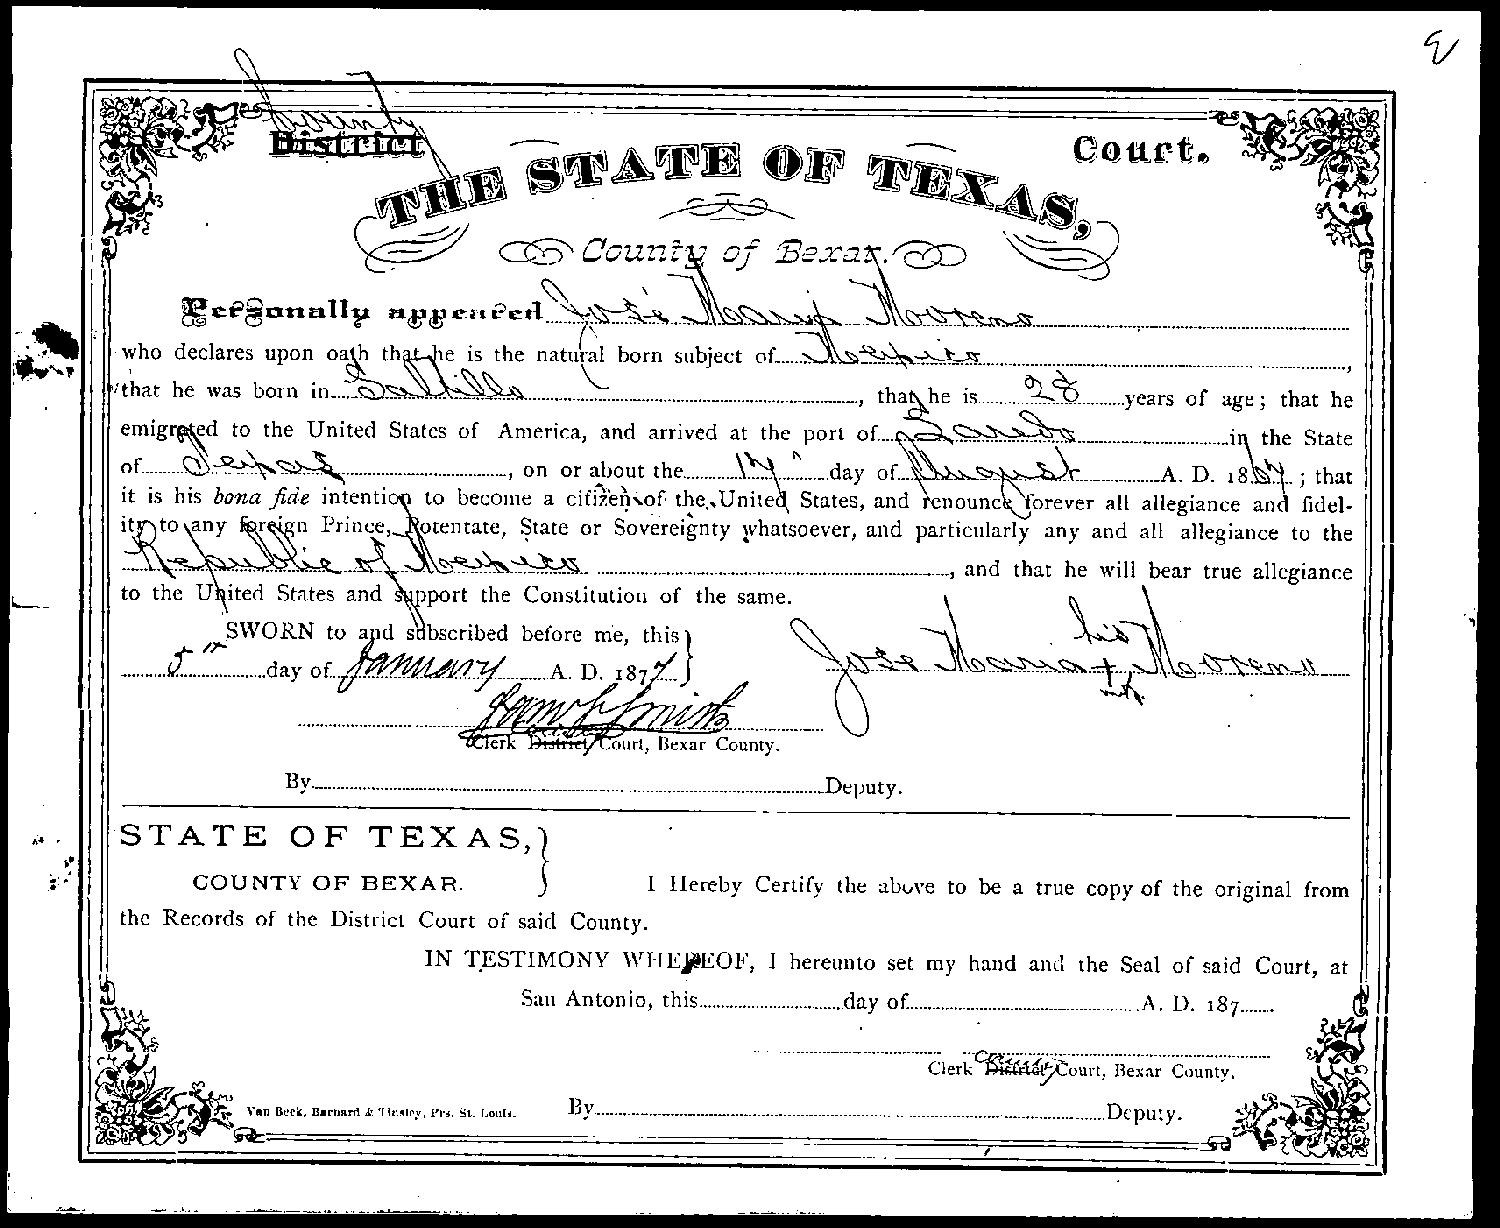 County
District Court.
THE STATE OF TEXAS,
County of Bexar.
Personally appeared José Maria Moreno
who declares upon oath that he is the natural born subject of Mexico,
that he was born in Saltillo, that he is 28 years of age; that he
emigrated to the United States of America, and arrived at the port of Laredo in the State
of Texas, on or about the 17" day of August A. D. 1867; that
it is his bona fide intention to become a citizen of the United States, and renounce forever all allegiance and fidel-
ity to any foreign Prince, Potentate, State or Sovereignty whatsoever, and particularly any and all allegiance to the
Republic of Mexico, and that he will bear true allegiance
to the United States and support the Constitution of the same.
SWORN to and subscribed before me, this
5th day of January A. D. 1877
his
José Maria + Moreno
mk.
Sam S Smith
County
Clerk District Court, Bexar County.
By Deputy.
STATE OF TEXAS,
COUNTY OF BEXAR.
I Hereby Certify the above to be a true copy of the original from
the Records of the District Court of said County.
IN TESTIMONY WHEREOF, I hereunto set my hand and the Seal of said Court, at
San Antonio, this day of A. D. 187
County
Clerk District Court, Bexar County.
Van Beek, Barnard & Tinsley, Prs. St. Louis.
By Deputy.